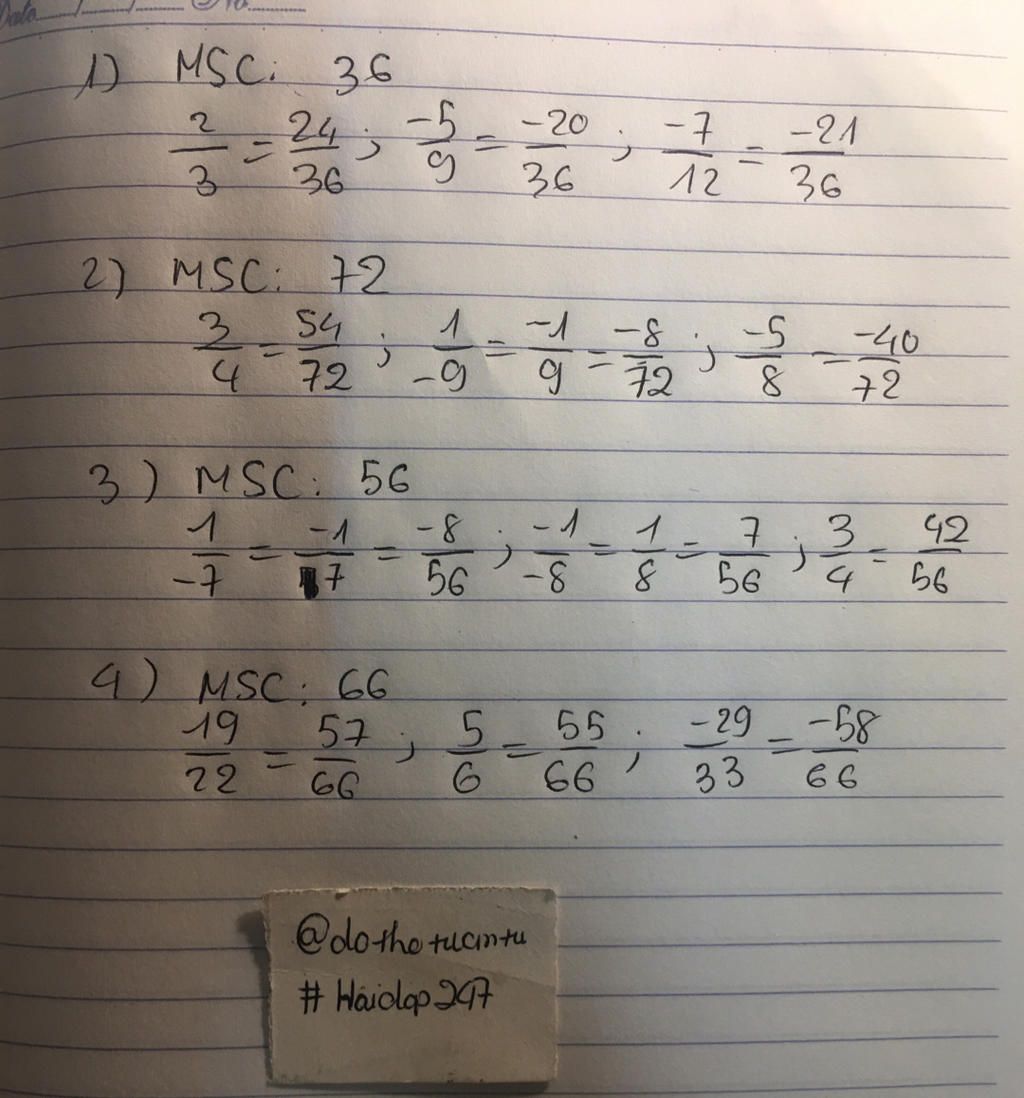 Date / / No
1) MSC: 36
2/3 = 24/36 ; -5/9 = -20/36 ; -7/12 = -21/36
2) MSC: 72
3/4 = 54/72 ; 1/-9 = -1/9 = -8/72 ; -5/8 = -40/72
3) MSC: 56
1/-7 = -1/7 = -8/56 ; -1/-8 = 1/8 = 7/56 ; 3/4 = 42/56
4) MSC: 66
19/22 = 57/66 ; 5/6 = 55/66 ; -29/33 = -58/66
# Hỏiđáp247